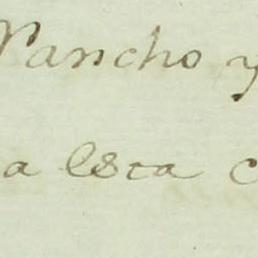 Pancho y
a esta